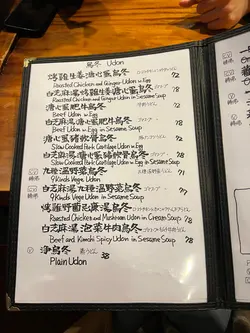 烏冬 Udon
烤雞生姜溏心蛋烏冬 72
Roasted Chicken and Ginger Udon w Egg
白芝麻湯烤雞生姜溏心蛋烏冬 78
Roasted Chicken and Ginger Udon in Sesame Soup
溏心蛋肥牛烏冬 72
Beef Udon w Egg
白芝麻湯溏心蛋肥牛烏冬 78
Beef Udon w Egg in Sesame Soup
溏心蛋豬軟骨烏冬 72
Slow Cooked Pork Cartilage Udon w Egg
白芝麻湯溏心蛋豬軟骨烏冬 78
Slow Cooked Pork Cartilage Udon w Egg in Sesame Soup
九種溫野菜烏冬 72
9 Kinds Vege Udon
白芝麻湯九種溫野菜烏冬 78
9 Kinds Vege Udon in Sesame Soup
烤雞野菌忌廉湯烏冬 78
Roasted Chicken and Mushroom Udon in Cream Soup
白芝麻湯泡菜牛肉烏冬 78
Beef and Kimchi Spicy Udon in Sesame Soup
淨烏冬 38
Plain Udon